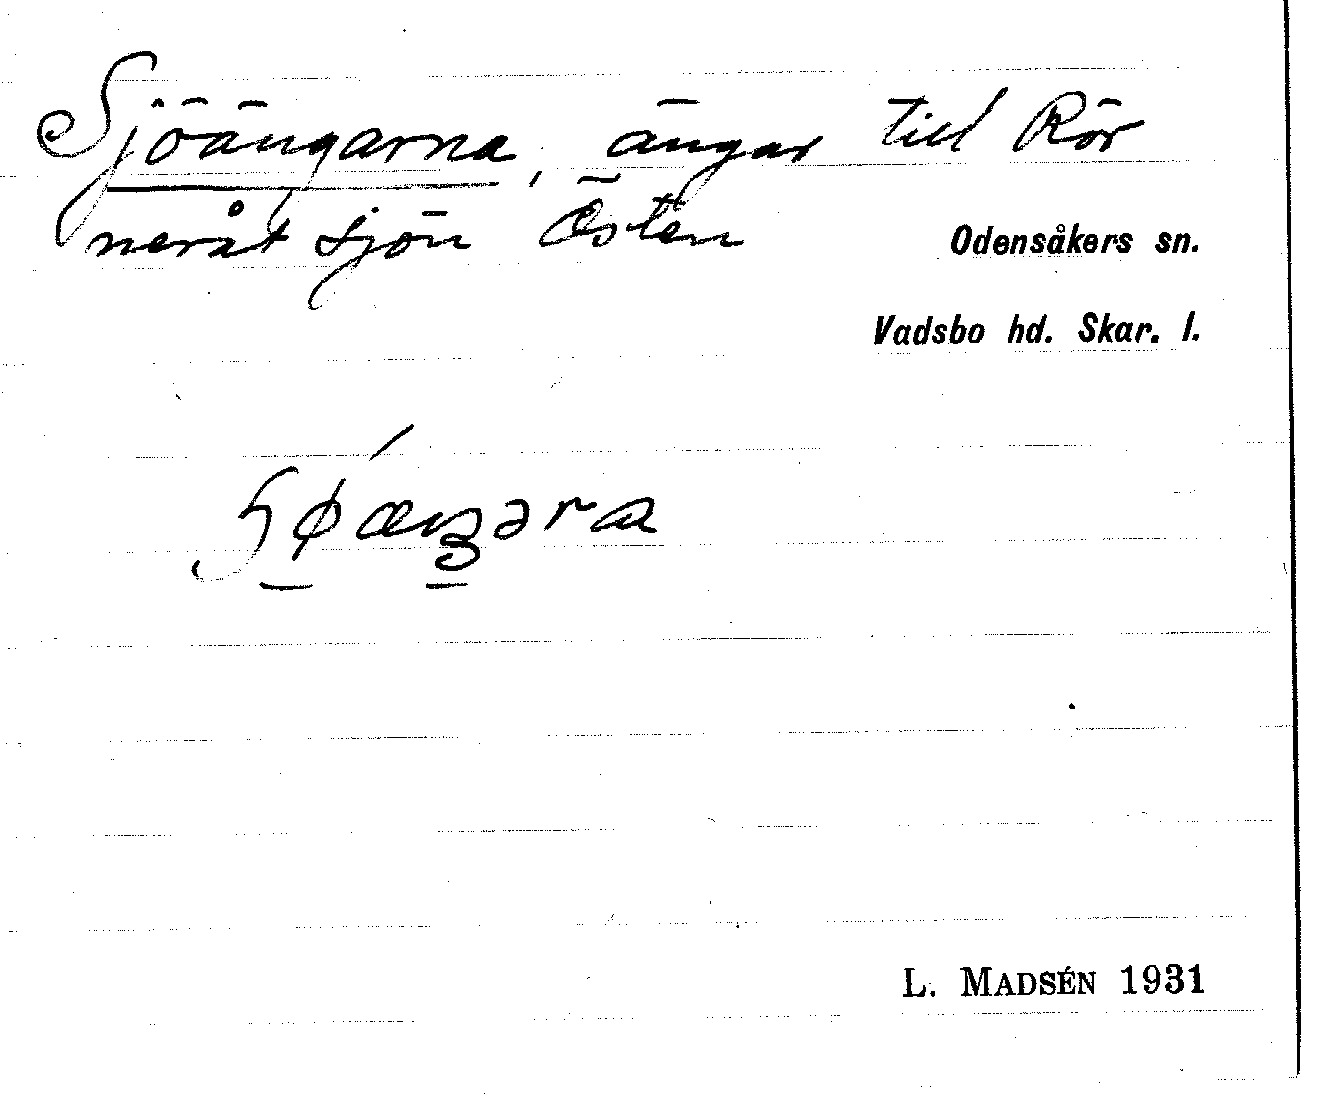 Sjöängarna, ängar till Rör
neråt sjön Östen
Odensåkers sn.
Vadsbo hd. Skar. l.
L. MADSÉN 1931